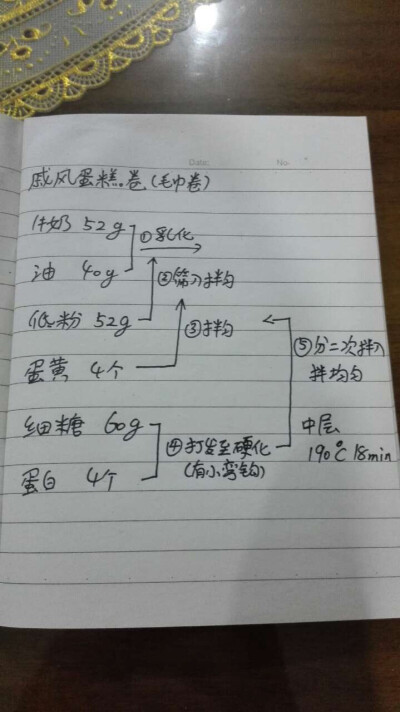 Date: No.
戚风蛋糕卷(毛巾卷)
牛奶 52g
①乳化
油 40g
②筛入拌均
低粉 52g
③拌均
蛋黄 4个
⑤分二次拌入
拌均匀
细糖 60g
④打发至硬化
(有小弯钩)
蛋白 4个
中层
190℃ 18min